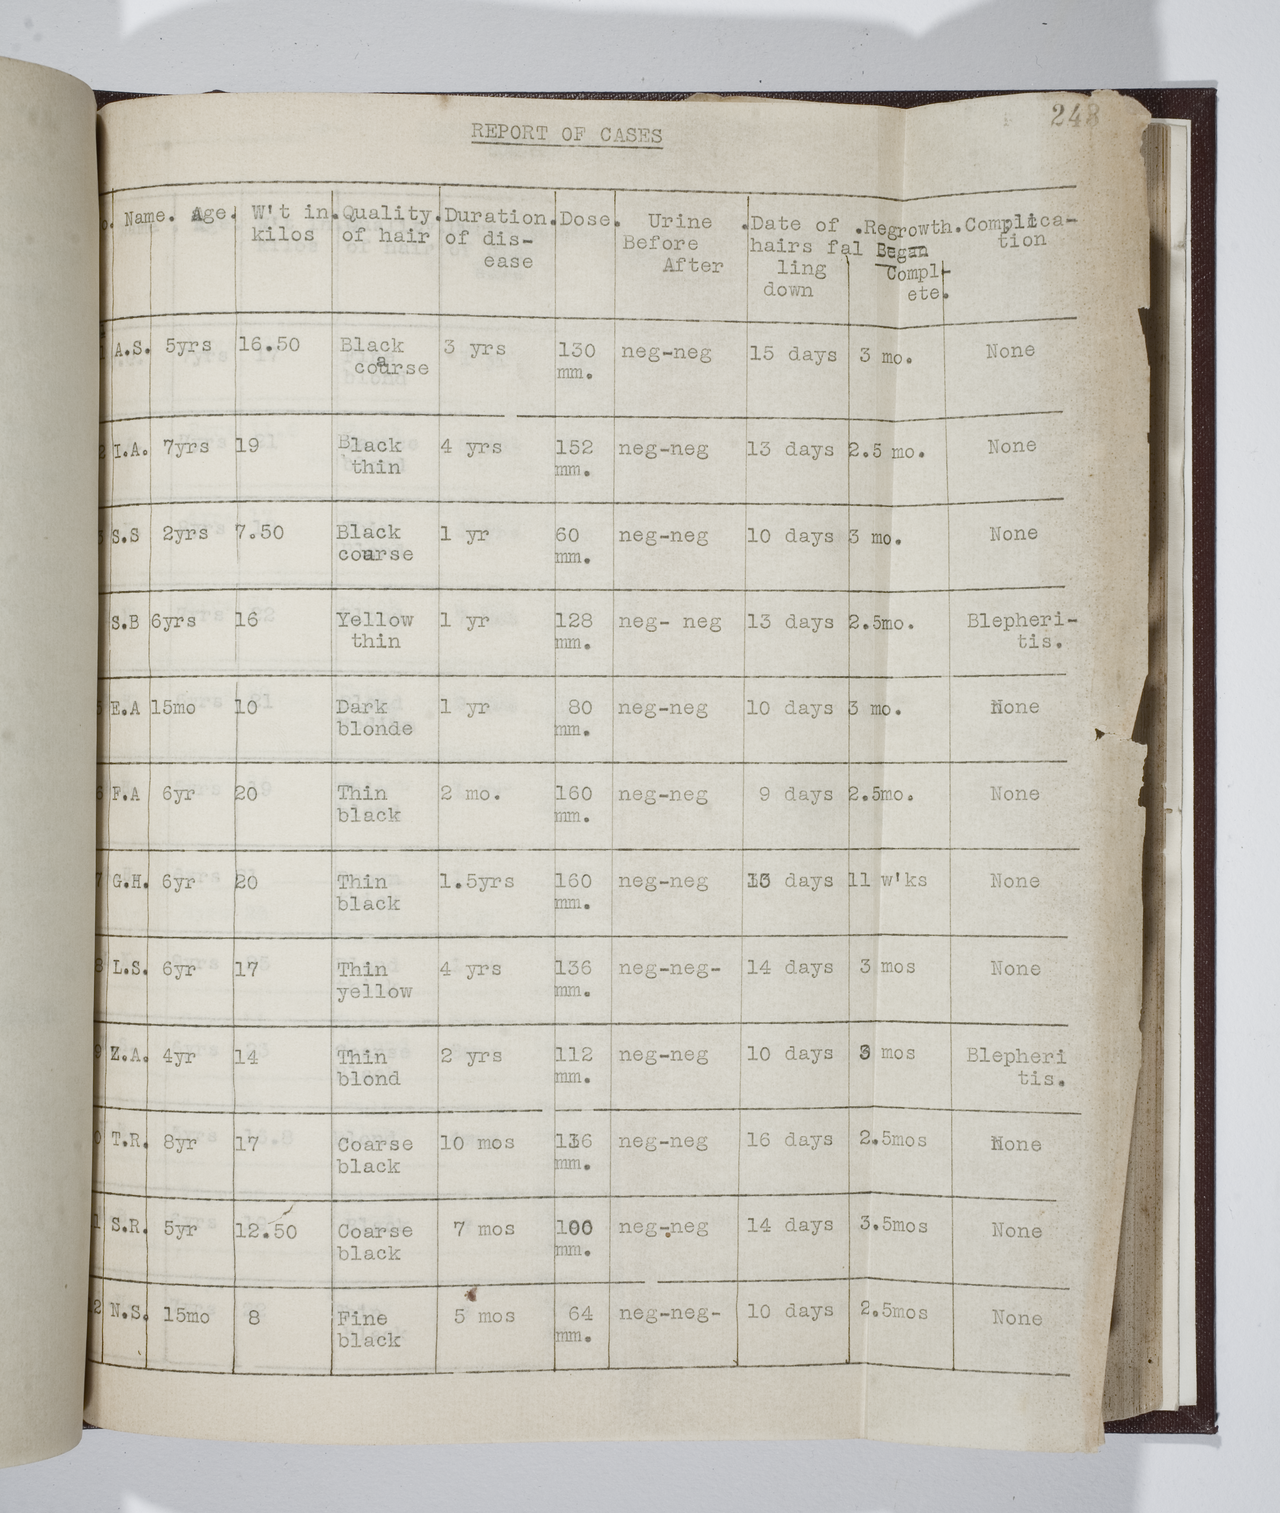 248
REPORT OF CASES
o. Name. Age. W't in. Quality. Duration. Dose. Urine .Date of .Regrowth. Complica-
kilos of hair of dis- Before hairs fal Began tion
ease After ling Compl-
down ete.
1 A.S. 5yrs 16.50 Black 3 yrs 130 neg-neg 15 days 3 mo. None
coarse mm.
2 I.A. 7yrs 19 Black 4 yrs 152 neg-neg 13 days 2.5 mo. None
thin mm.
3 S.S 2yrs 7.50 Black 1 yr 60 neg-neg 10 days 3 mo. None
coarse mm.
S.B 6yrs 16 Yellow 1 yr 128 neg- neg 13 days 2.5mo. Blepheri-
thin mm. tis.
5 E.A 15mo 10 Dark 1 yr 80 neg-neg 10 days 3 mo. None
blonde mm.
6 F.A 6yr 20 Thin 2 mo. 160 neg-neg 9 days 2.5mo. None
black mm.
7 G.H. 6yr 20 Thin 1.5yrs 160 neg-neg days 11 w'ks None
black mm.
8 L.S. 6yr 17 Thin 4 yrs 136 neg-neg- 14 days 3 mos None
yellow mm.
9 Z.A. 4yr 14 Thin 2 yrs 112 neg-neg 10 days 3 mos Blepheri
blond mm. tis.
0 T.R. 8yr 17 Coarse 10 mos 136 neg-neg 16 days 2.5mos None
black mm.
1 S.R. 5yr 12.50 Coarse 7 mos 100 neg-neg 14 days 3.5mos None
black mm.
2 N.S. 15mo 8 Fine 5 mos 64 neg-neg- 10 days 2.5mos None
black mm.